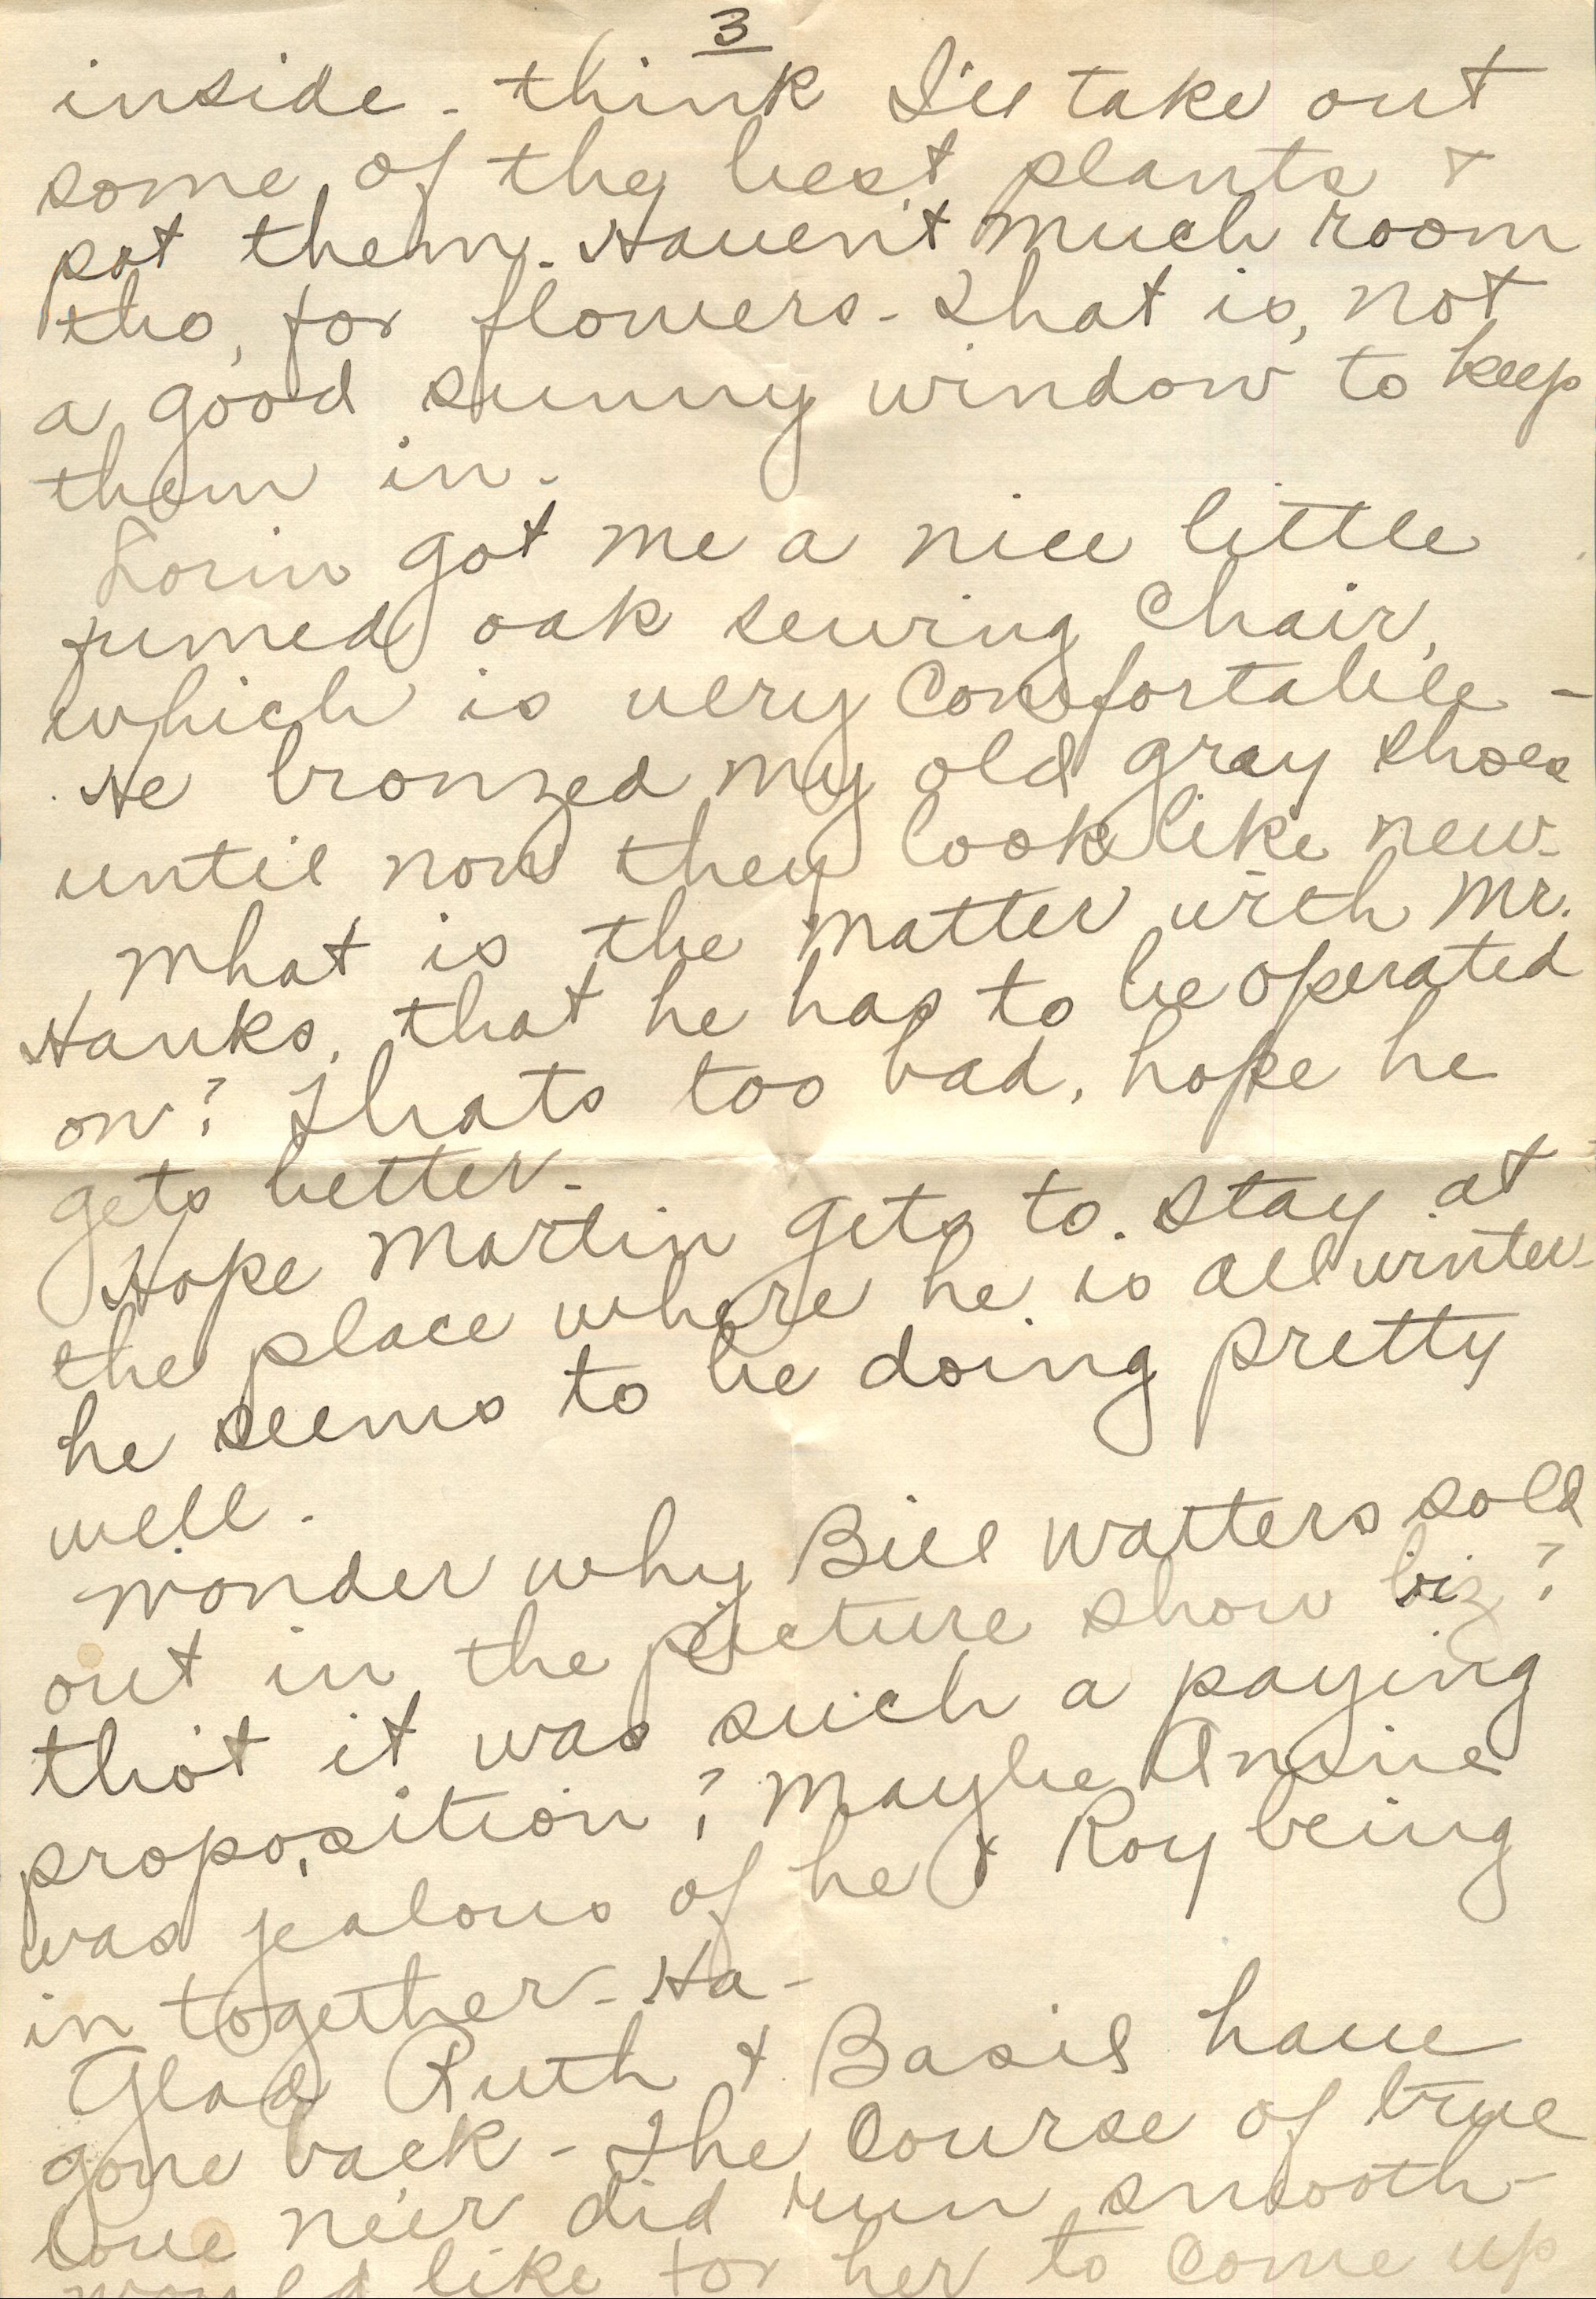 3
inside - think I'll take out
some of the best plants &
pot them. Haven't much room
tho, for flowers - That is, not
a good sunny window to keep
them in.
Lorin got me a nice little
fumed oak sewing chair,
which is very comfortable -
He bronzed my old gray shoes
until now they look like new.
What is the matter with Mr.
Hanks, that he has to be operated
on? Thats too bad, hope he
gets better.
Hope Martin gets to stay at
the place where he is all winter -
he seems to be doing pretty
well.
Wonder why Bill Watters sold
out in the picture show biz?
thot it was such a paying
proposition? Maybe Annie
was jealous of he & Roy being
in together - Ha -
Glad Ruth & Basil have
gone back - The course of true
love ne'er did run smooth -
would like for her to come up